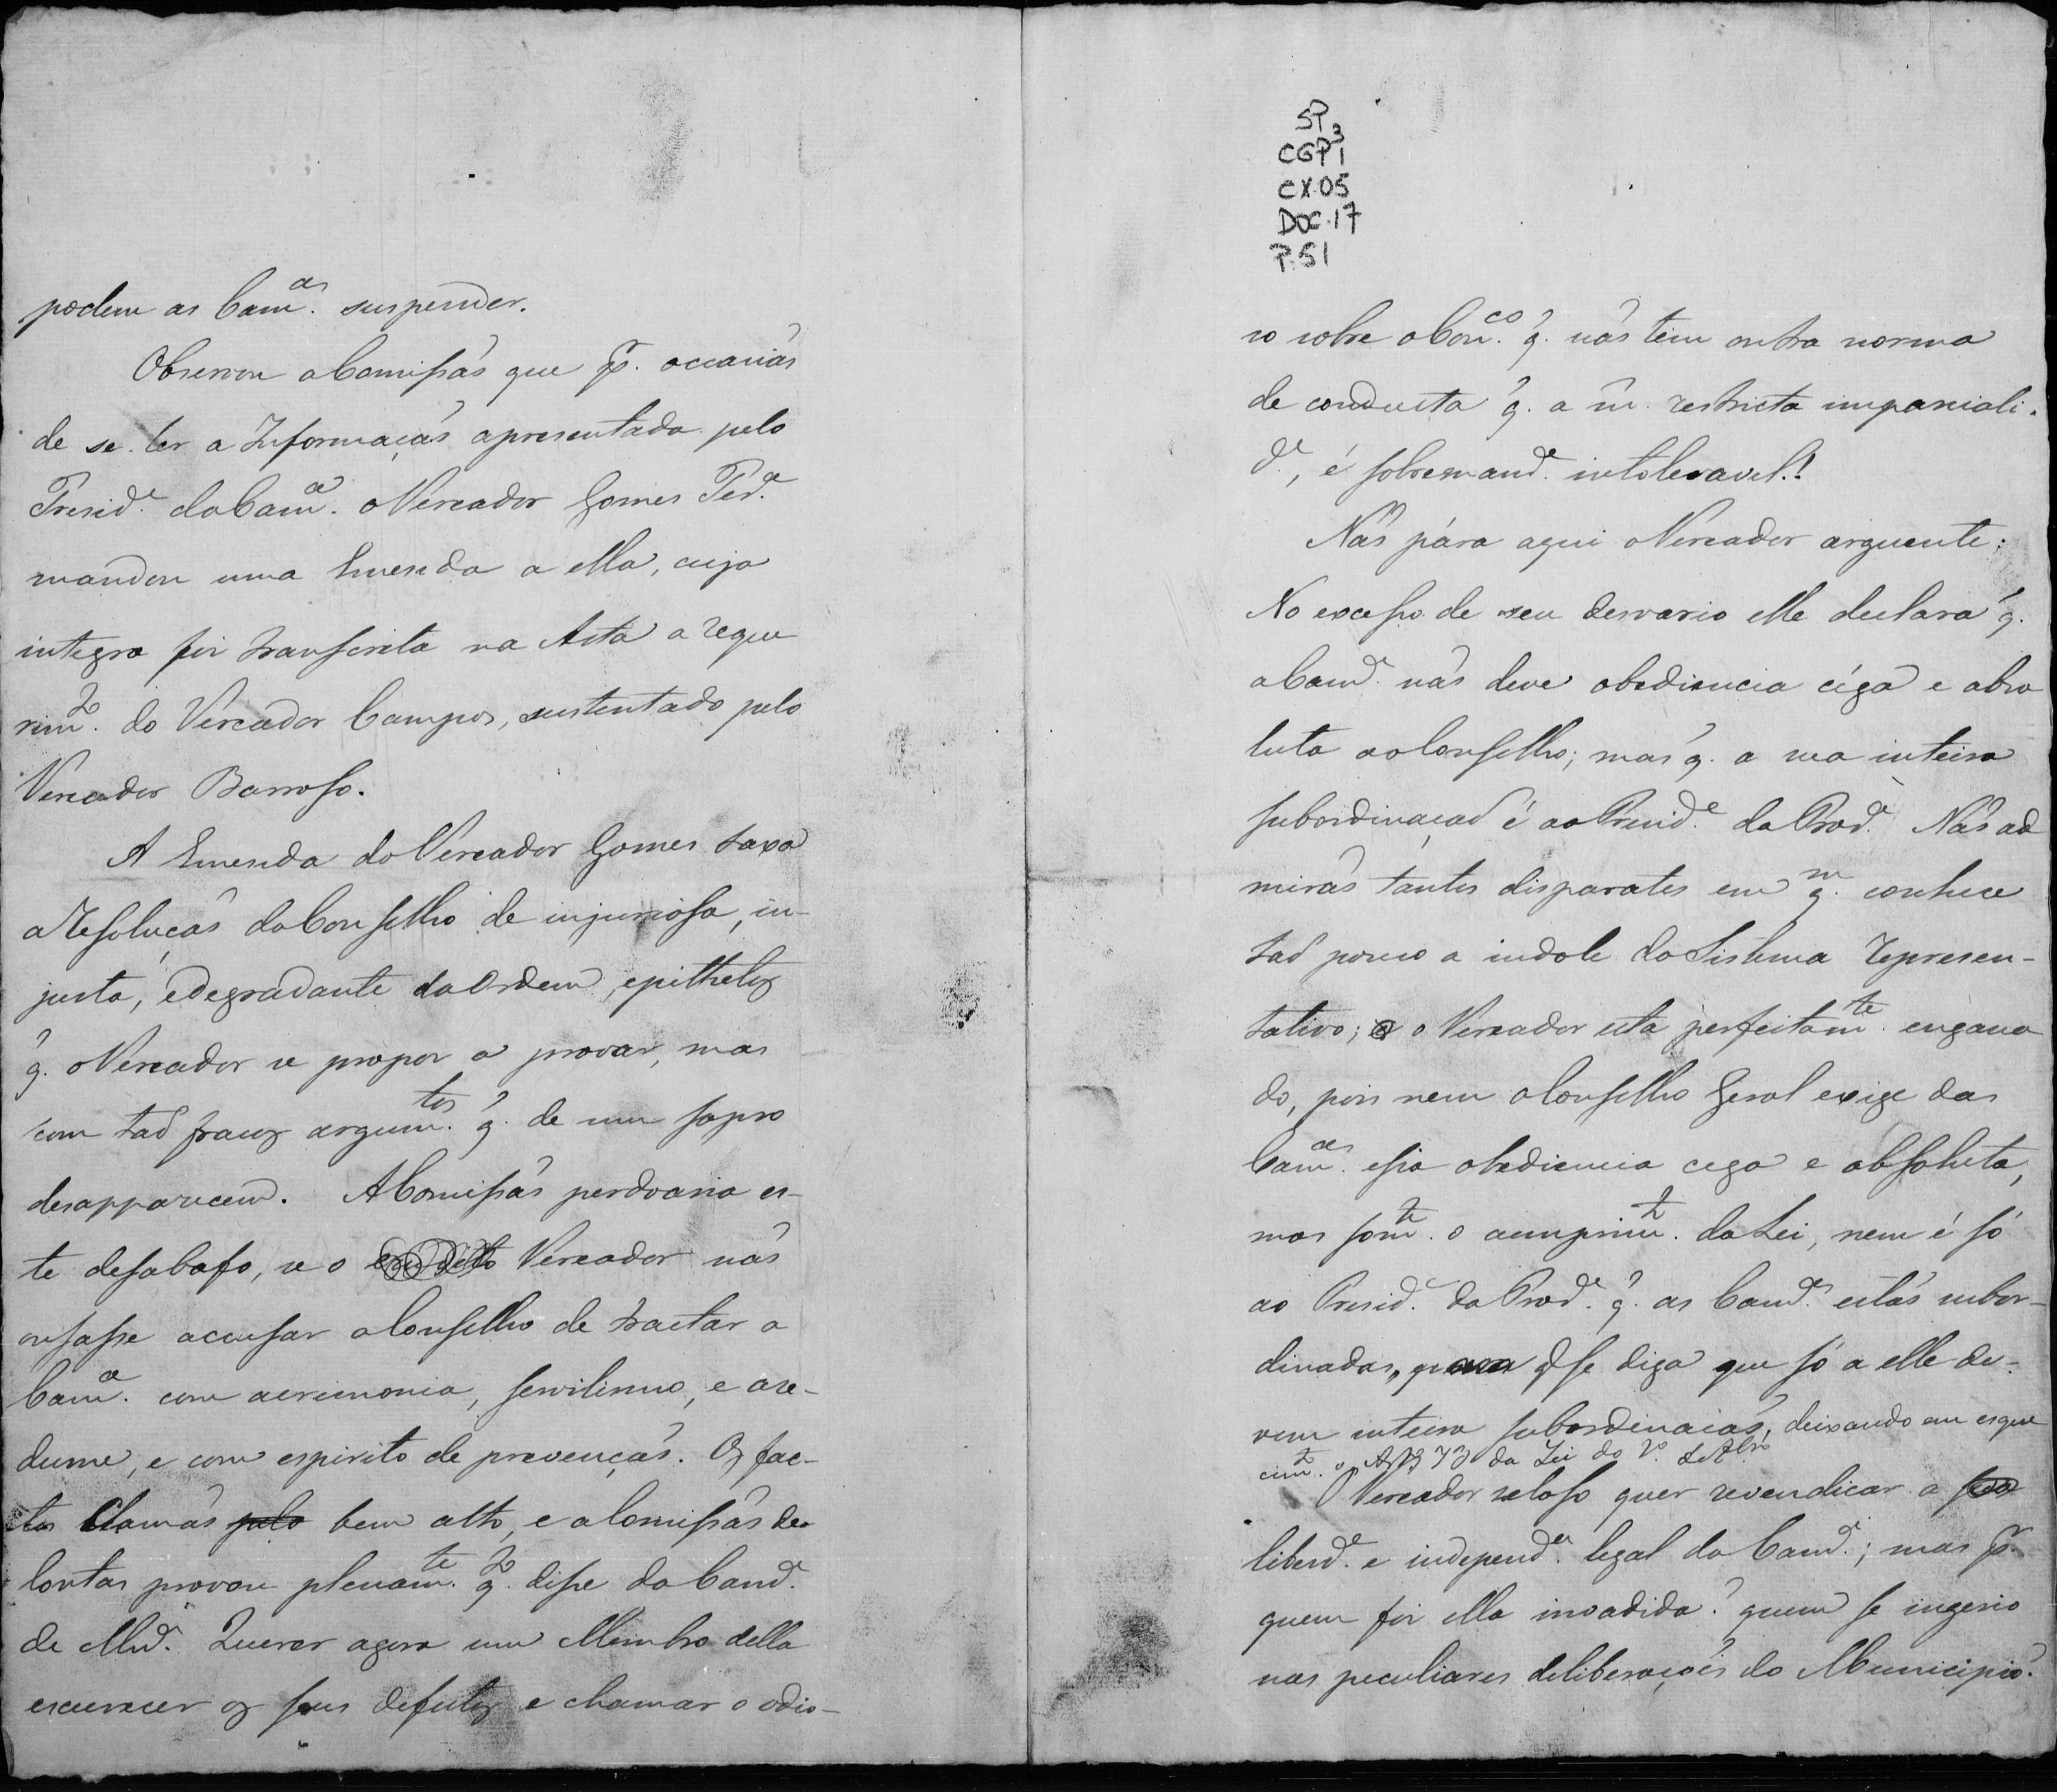 podem as Cam.as suspender.
Observou a Comissaõ que p.r occasiaõ
de se ler a Informaçaõ apresentada pelo
Presid.e da Cam.a o Vereador Gomes Ped.e
mandou uma Emenda a ella, cuja
integra foi transcrita na Acta a reque
rim.to do Vereador Campos, sustentado pelo
Vereador Barroso.
A Emenda do Vereador Gomes taxa
a Resoluçaõ do Conselho de injuriosa, in-
justa, e degradante da Ordem, epithetos
q. o Vereador se propoz a provar, mas
com taõ fracos argum.tos q. de um sopro
desapparecem. A Comissaõ perdoaria es-
te desabafo, se o Vereador naõ
ousasse accusar o Conselho de tractar a
Cam.a com acrimonia, servilismo, e aze-
dume, e com espirito de prevençaõ. Os fac-
tos clamaõ pelo bem alto, e a Comissaõ de
Contas provou plenam.te q.to disse da Cam.a
de Mid. Querer agora um Membro della
escurecer os seus defeitos e chamar o odio-
SP
CGP1 3
CX.05
DOC.17
P.51
so sobre o Con.co q. naõ tem outra norma
de conducta q. a m. restricta imparciali-
d.e, é sobremand.a intoleravel!
Naõ pára aqui o Vereador arguente:
No excesso de seu desvario elle declara q.
a Cam.a naõ deve obediencia céga e abso
luta ao Conselho; mas q. a sua inteira
subordinaçaõ é ao Presid.e da Prov.a Naõ ad
miraõ tantos disparates em q.m conhece
taõ pouco a indole do Sistema Represen-
tativo; o Vereador esta perfeitam.te engana
do, pois nem o Conselho Geral exige das
Cam.as essa obediencia cega e absoluta,
mas som.te o cumprim.to da Lei, nem é só
ao Presid.e da Prov.a q. as Cam.as estaõ subor-
dinadas, para q se diga que só a elle de-
vem inteira subordinaçaõ, deixando em esque
cim.to o Art 73 da Lei do 1.º de 8bro
O Vereador zeloso quer revendicar a sua
liberd.e e independ.ca legal da Cam.a; mas p.r
quem foi ella invadida? quem se ingerio
nas peculiares deliberaçoẽs do Municipio?